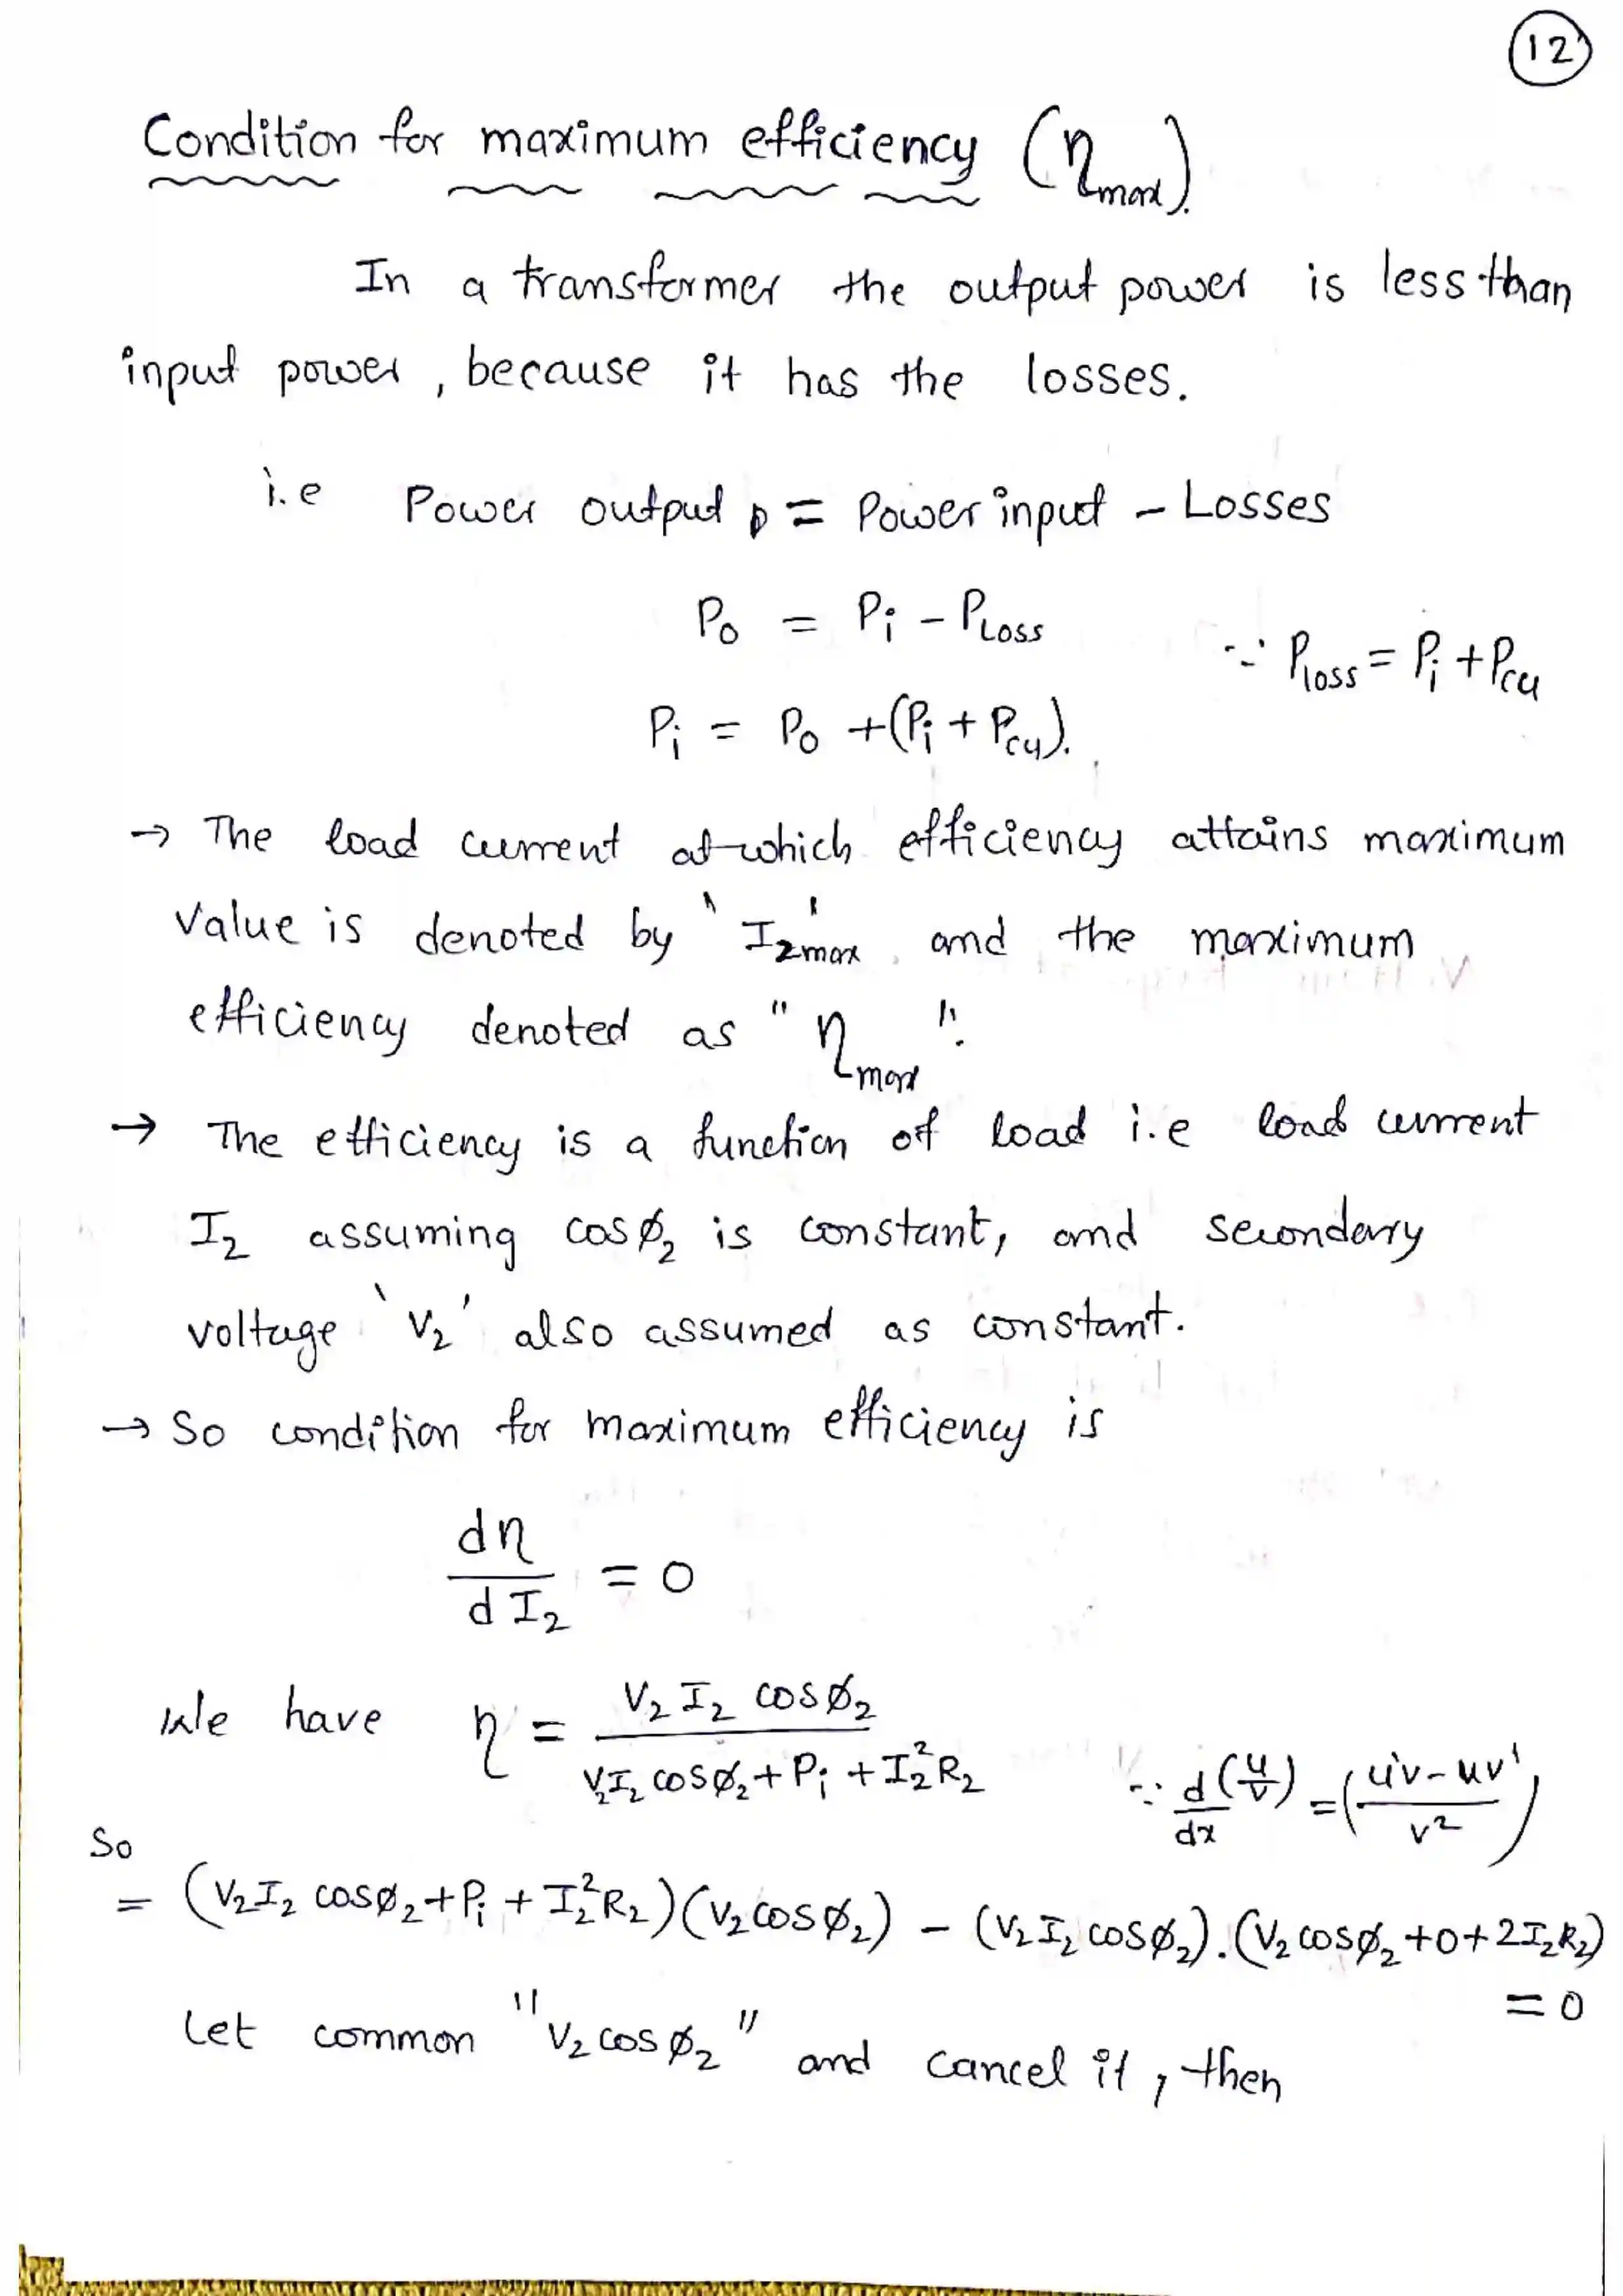 12
Condition for maximum efficiency (η max).
In a transformer the output power is less than
input power, because it has the losses.
i.e Power output = Power input - Losses
Po = Pi - PLoss
∵ Ploss = Pi + Pcu
Pi = Po + (Pi + Pcu).
→ The load current at which efficiency attains maximum
Value is denoted by 'I2max' and the maximum
efficiency denoted as "ηmax".
→ The efficiency is a function of load i.e load current
I2 assuming cosø2 is constant, and secondary
voltage 'V2' also assumed as constant.
→ So condition for maximum efficiency is
dη/dI2 = 0
We have η = V2 I2 cosø2 / V2I2 cosø2 + Pi + I2²R2
∵ d/dx (u/v) = (u'v - uv' / v²)
So
= (V2I2 cosø2 + Pi + I2²R2)(V2 cosø2) - (V2 I2 cosø2).(V2 cosø2 + 0 + 2I2R2)
= 0
Let common "V2 cosø2" and cancel it, then